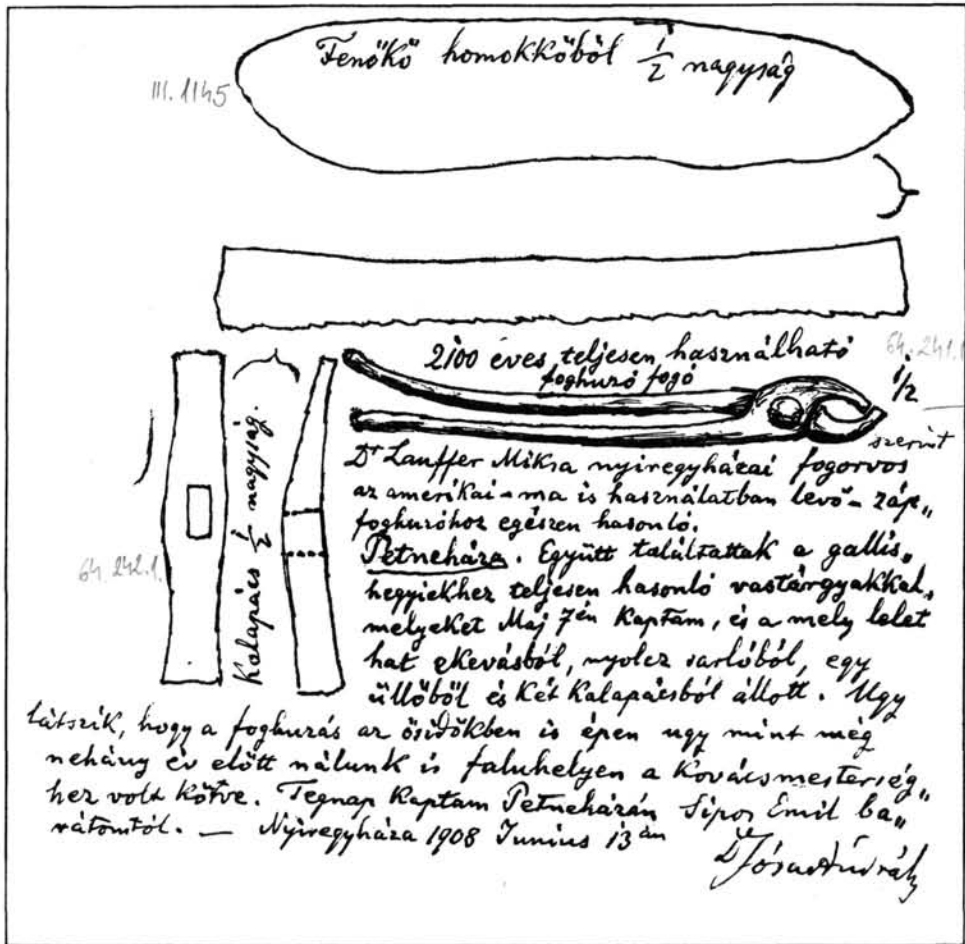 Fenőkő homokkőből 1/2 nagyság
III. 1145
2100 éves teljesen használható
foghuzó fogó
64. 241.1.
1/2
szerint
Dr Lauffer Miksa nyiregyházai fogorvos
az amerikai - ma is használatban levő - záp„
foghuzóhoz egészen hasonló.
Petneháza. Együtt találtattak a gallis„
hegyiekhez teljesen hasonló vastárgyakkal,
melyeket Maj 7én Kaptam, és a mely lelet
hat ekevasból, nyolcz sarlóból, egy
üllőből és Két Kalapácsból állott. Ugy
látszik, hogy a foghuzás az ősidőkben is épen ugy mint még
nehány év előtt nálunk is faluhelyen a Kovácsmesterség„
hez volt Kötve. Tegnap Kaptam Petneházán Sipos Emil ba„
rátomtól. — Nyiregyháza 1908 Junius 13 án
Dr Jósa András
Kalapács 1/2 nagyság.
64. 242.1.